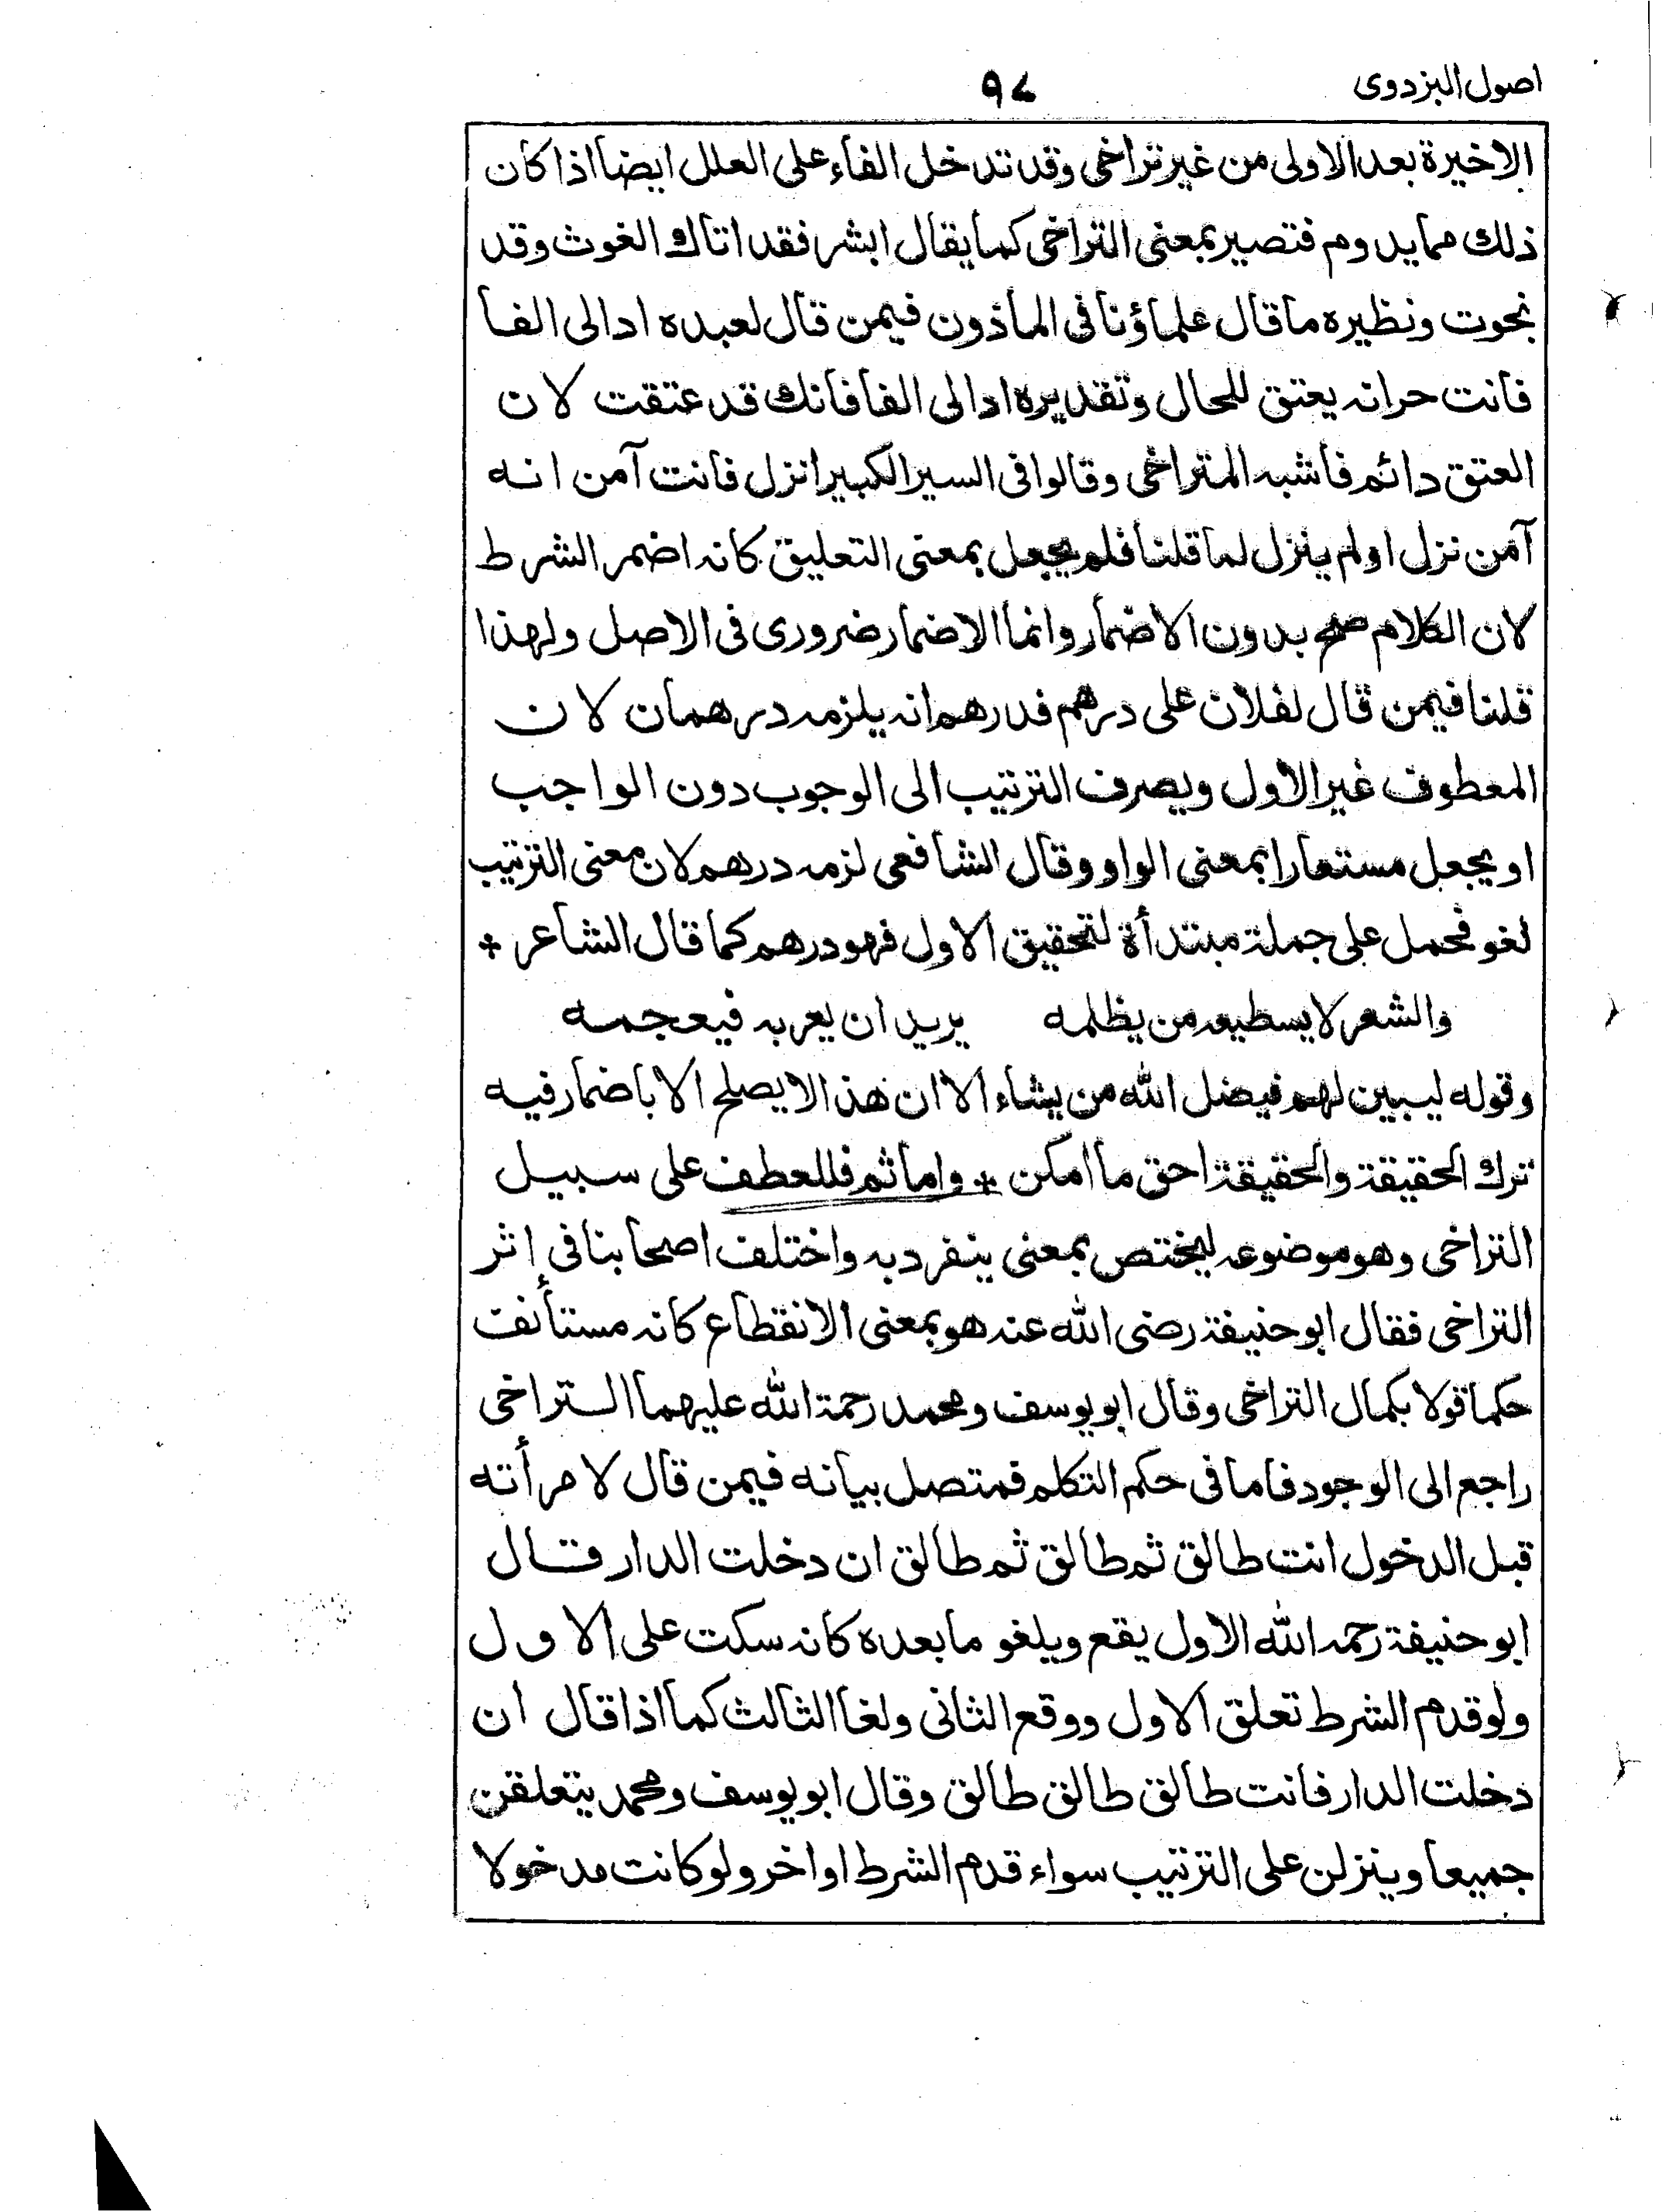 اصول البزدوى
٩٧
الاخيرة بعد الاولى من غير تراخى وقد تدخل الفاء على العلل ايضا اذا كان
ذلك مما يدوم فتصير بمعنى التراخى كما يقال ابشر فقد اتاك الغوث وقد
نجوت ونظيره ما قال علماؤنا فى الماذون فيمن قال لعبده اد الى الفا
فانت حرانه يعتق للحال وتقديره اد الى الفا فانك قد عتقت لان
العتق دائم فاشبه المتراخى وقالوا فى السير الكبير انزل فانت آمن انه
آمن نزل اولم ينزل لما قلنا فلم يجعل بمعنى التعليق كانه اضمر الشرط
لان الكلام صح بدون الاضمار وانما الاضمار ضرورى فى الاصل ولهذا
قلنا فيمن قال لفلان على درهم فدرهم انه يلزمه درهمان لان
المعطوف غير الاول ويصرف الترتيب الى الوجوب دون الواجب
او يجعل مستعارا بمعنى الواو وقال الشافعى لزمه درهم لان معنى الترتيب
لغو فحمل على جملة مبتدأة لتحقيق الاول فهو درهم كما قال الشاعر *
والشعر لا يسطيعه من يظلمه يريد ان يعربه فيعجمه
وقوله ليبين لهم فيضل الله من يشاء الا ان هذا لا يصلح الا باضمار فيه
ترك الحقيقة والحقيقة احق ما امكن * واما ثم فللعطف على سبيل
التراخى وهو موضوعه ليختص بمعنى ينفرد به واختلف اصحابنا فى إثر
التراخى فقال ابو حنيفة رضى الله عنه هو بمعنى الانقطاع كانه مستأنف
حكما قولا بكمال التراخى وقال ابو يوسف ومحمد رحمة الله عليهما التراخى
راجع الى الوجود فاما فى حكم التكلم فمتصل بيانه فيمن قال لامرأته
قبل الدخول انت طالق ثم طالق ثم طالق ان دخلت الدار قال
ابو حنيفة رحمه الله الاول يقع ويلغو ما بعده كانه سكت على الاول
ولو قدم الشرط تعلق الاول ووقع الثانى ولغا الثالث كما اذا قال ان
دخلت الدار فانت طالق طالق طالق وقال ابو يوسف ومحمد يتعلقن
جميعا وينزلن على الترتيب سواء قدم الشرط او اخر ولو كانت مدخولا